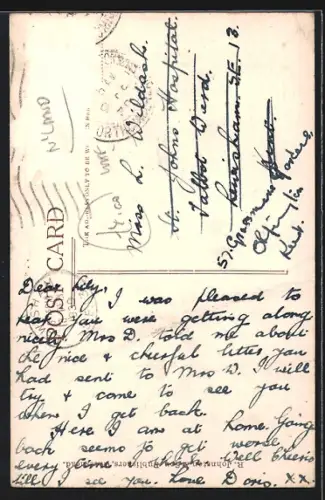 POST CARD
N'LAND
Miss L. Wildash.
St. Johns Hospital.
Talbot Ward.
Lewisham. S.E. 13.
Kent.
Dear Lily,
I was pleased to
hear you were getting along
nicely Mrs D. told me about
the nice & cheerful letter you
had sent to Mrs W. I will
try & come to see you
when I get back.
Here I am at home. Going
back seems to get worse
every time. Well Cheerio
till I see you. Love Doris. xx.
R. Johnston & Sons, Publishers,